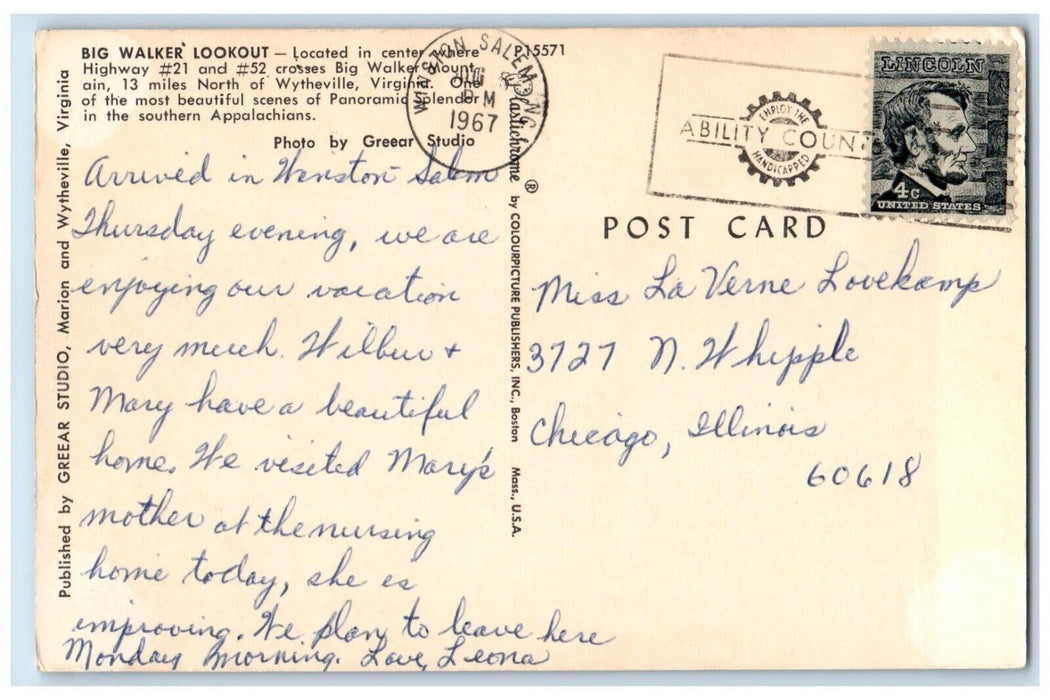 BIG WALKER LOOKOUT — Located in center where
Highway #21 and #52 crosses Big Walker Mount-
ain, 13 miles North of Wytheville, Virginia. One
of the most beautiful scenes of Panoramic Splendor
in the southern Appalachians.
Photo by Greear Studio
P15571
WINSTON SALEM NC
PM
1967
EMPLOY THE
ABILITY COUNTS
HANDICAPPED
LINCOLN
4c
UNITED STATES
Published by GREEAR STUDIO, Marion and Wytheville, Virginia
Plastichrome ® by COLOURPICTURE PUBLISHERS, INC., Boston Mass., U.S.A.
POST CARD
Arrived in Winston Salem
Thursday evening, we are
enjoying our vacation
very much. Wilbur +
Mary have a beautiful
home. We visited Mary's
mother at the nursing
home today, she is
improving. We plan to leave here
Monday morning. Love, Leona
Miss La Verne Lovekamp
3727 N. Whipple
Chicago, Illinois
60618